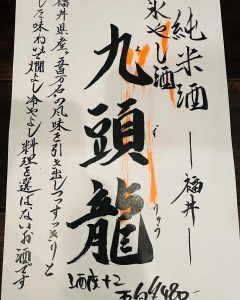 純米酒 ― 福井 ―
氷やし酒
九頭龍
くずりゅう
福井県産の五百万石の風味を引き出しつつすっきりと
した味わい 燗よし冷やよし料理を選ばないお酒です
酒度+2